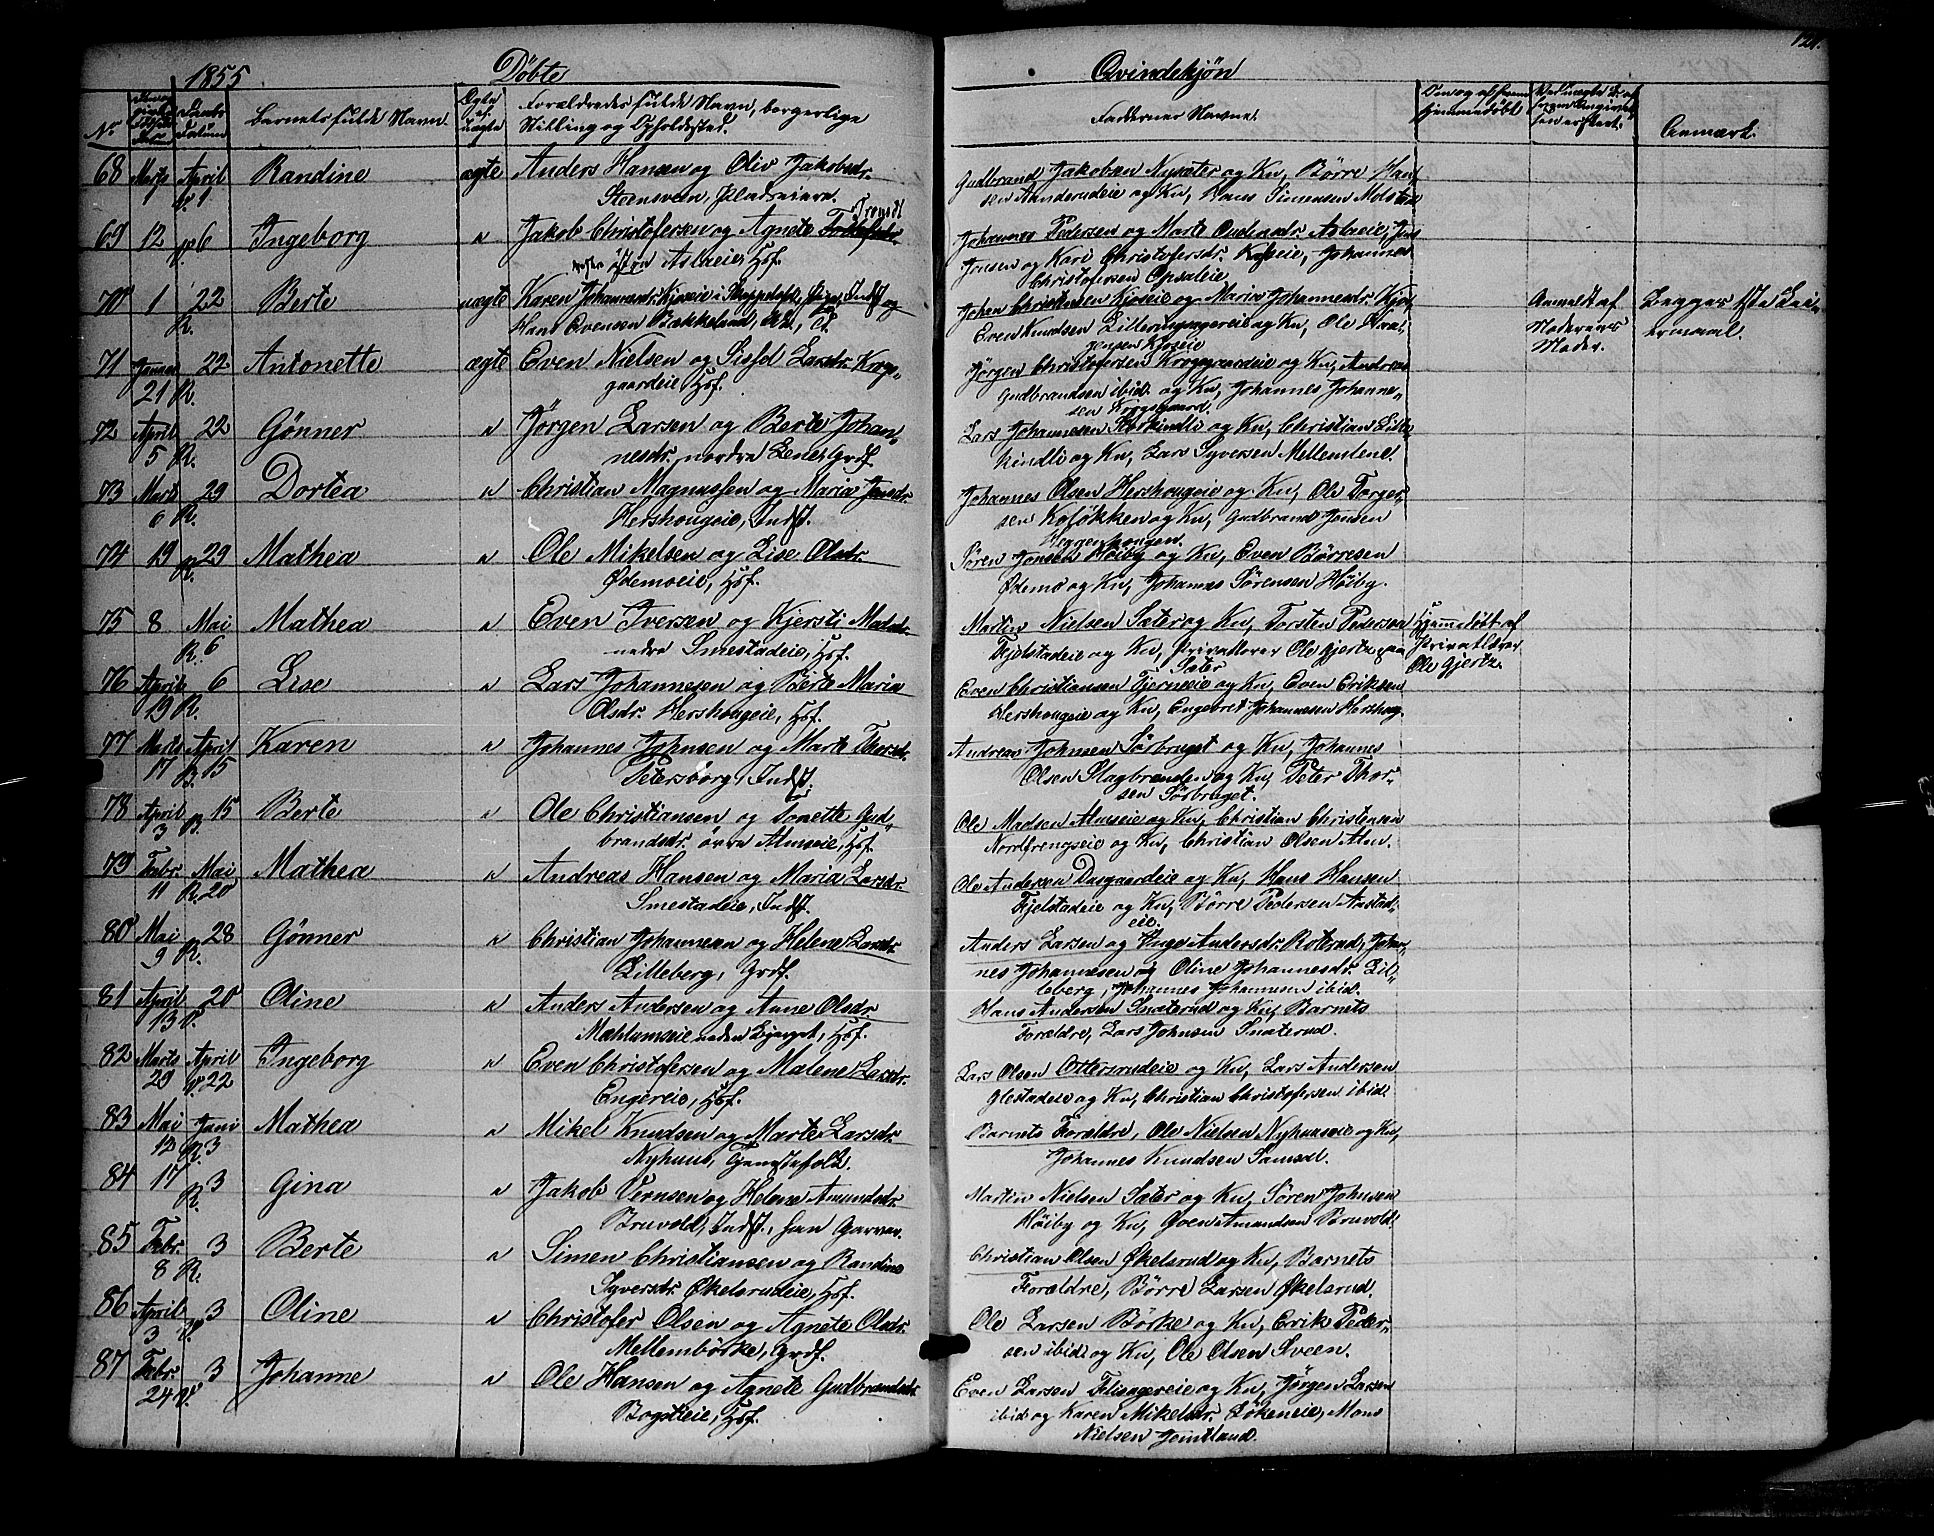 1855. Døbte
Qvindekjøn
121.
No
Daabs Datum
Barnets fulde Navn.
Ægte el. uægte
Forældrenes fulde Navn, borgerlige
Stilling og Opholdssted.
Faddernes Navne.
Om og af hvem hjemmedøbt
Anmærk.
68 Marts 9 April 1 Randine ægte Anders Hansen og Oliv Jakobsdr.
Steensveen, Pladseiere.
Gudbrand Jakobsen Nysæter og Kn, Børre Han-
sen Aanderudeie og Kn, Hans Simensen Molsteen
69 12 6 Ingeborg " Jakob Christofersen og Agnete
Aslaeie, Hsf.
Johannes Pedersen og Marte Aslaeie, Jens
Jensen og Kari Christofersdr. Johannes
Christofersen Opsaleie
70 1 22 R. Berte uægte Karen Johannesdr. Kjoseie og
Hans Evensen Bækkelund,
Johan Christensen Kjoseie og Maria Johannesdr.
Even Knudsen og Kn, Ole
Kjoseie
Anmeldt af Moderens Moder.
Begges 1ste Leiermaal.
71 Januar 21 22 R. Antonette ægte Even Nielsen og Sisel Larsdr. Krogs-
gaardeie, Hsf.
Jørgen Christofersen Krogsgaardeie og Kn, Andreas
Gudbrandsen ibid. og Kn, Johannes Johanne-
sen Krogsgaard.
72 April 5 22 R. Gønner " Jørgen Larsen og Berte Johan-
nesdr. nordre Lene, Grdf.
Lars Johannesen Storkindli og Kn, Christian Lille-
kindli og Kn, Lars Syversen Mellemlene.
73 Marts 6 29 R. Dortea " Christian Magnussen og Maria Jensdr.
Hershougeie, Indst.
Johannes Olsen Hershougeie og Kn, Ole Torger-
sen Koløkken og Kn, Gudbrand Jensen
Heggenhougen.
74 19 29 R. Mathea " Ole Mikelsen og Lise Olsdr.
Ødemoeie, Hsf.
Søren Jensen Høiby og Kn, Even Børresen
Ødemo og Kn, Johannes Sørensen Høiby.
75 8 Mai 6 R. Mathea " Even Iversen og Kjersti Madsdr.
nedre Smestadeie, Hsf.
Martin Nielsen Sæter og Kn, Torsten Pedersen
Fjelstadeie og Kn, Privatlærer Ole Gjertz paa
Sæter
Hjemmedøbt af Privatlærer Ole Gjertz.
76 April 19 6 R. Lise " Lars Johannesen og Berte Maria
Olsdr. Hershougeie, Hsf.
Even Christiansen Tjerneeie og Kn, Even Eriksen
Hershougeie og Kn, Engebret Johannesen Hershoug.
77 Marts 17 April 15 B. Karen " Johannes Johnsen og Marte Thorsdr.
Petersborg, Indst.
Andreas Johnsen Sørbruget og Kn, Johannes
Olsen Slagbrenden og Kn, Peter Thor-
sen Sørbruget.
78 April 3 15 B. Berte " Ole Christiansen og Donette Gud-
brandsdr. øvre Almseie, Hsf.
Ole Madsen Almseie og Kn, Christian Christensen
Nordfrengseie og Kn, Christian Olsen Alm.
79 Febr. 11 Mai 20 R. Mathea " Andreas Hansen og Maria Larsdr.
Smestadeie, Indst.
Ole Andersen Dusgaardeie og Kn, Hans Hansen
Fjelstadeie og Kn, Børre Pedersen Anstad-
eie.
80 Mai 9 28 R. Gønner " Christian Johannesen og Helene Larsdr.
Lilleberg, Grdf.
Anders Larsen og Inge Andersdr. Roterud, Johan-
nes Johannesen og Oline Johannesdr. Lil-
leberg, Johannes Johannesen ibid.
81 April 13 20 Oline " Anders Andersen og Anne Olsdr.
Mæhlumseie neden Bjerget, Hsf.
Hans Andersen Snaterud og Kn, Barnets
Forældre, Lars Johnsen Snaterud.
82 Marts 29 April 22 Ingeborg " Even Christofersen og Malene Larsdr.
Engereie, Hsf.
Lars Olsen Ottersrudeie og Kn, Lars Andersen
Glestadeie og Kn, Christian Christofersen ibid.
83 Mai 12 Juni 3 R. Mathea " Mikel Knudsen og Marte Larsdr.
Nyhuus, Gangstafolk.
Barnets Forældre, Ole Nielsen Nyhuuseie og Kn,
Johannes Knudsen Samsal.
84 17 3 R. Gina " Jakob Vernsen og Helene Amundsdr.
Bruvold, Indst., han Garver.
Martin Nielsen Sæter og Kn, Søren Johnsen
Høiby og Kn, Even Amundsen Bruvold.
85 Febr. 8 3 R. Berte " Simen Christiansen og Randine
Syversdr. Økelsrudeie, Hsf.
Christian Olsen Økelsrud og Kn, Barnets
Forældre, Børre Larsen Økelsrud.
86 April 3 3 Oline " Christofer Olsen og Agnete Olsdr.
Mellembørke, Grdf.
Ole Larsen Børke og Kn, Erik Peder-
sen ibid og Kn, Ole Olsen Sveen.
87 Febr. 24 3 Johanne " Ole Hansen og Agnete Gudbrandsdr.
Bogstieie, Hsf.
Even Larsen Flisagereie og Kn, Jørgen Larsen
ibid og Karen Mikelsdr. Løkeneie, Mons
Nielsen Jemtland.